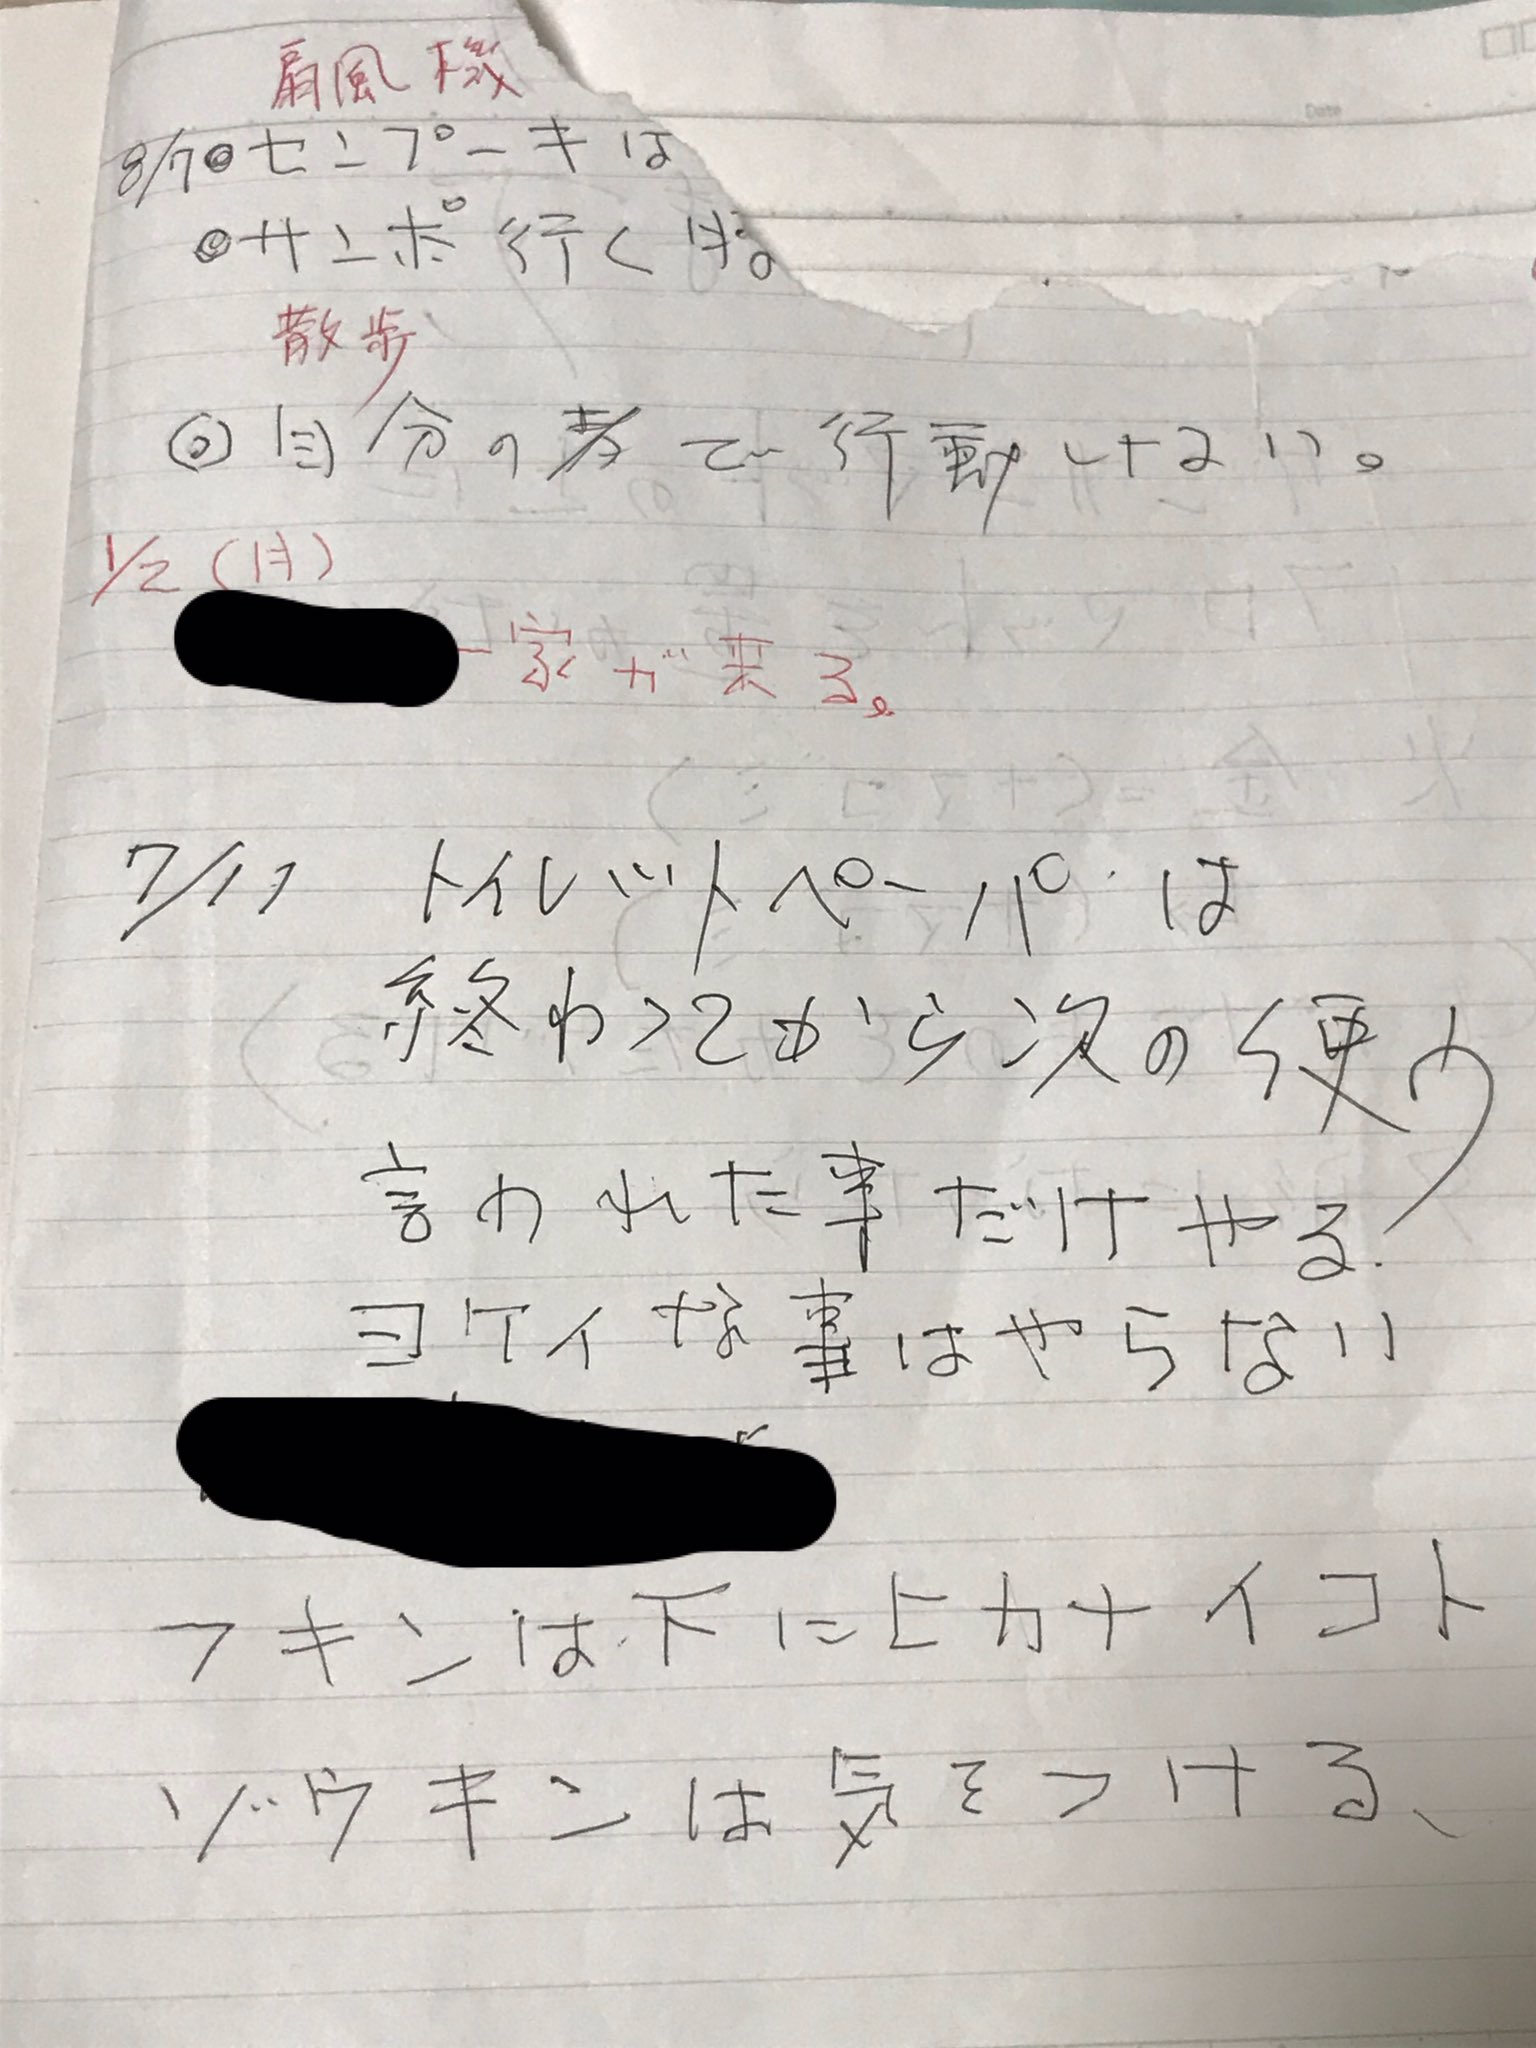 扇風機
8/7◎センプーキは
◎サンポ行く時。
散歩
◎自分の考で行動しない。
1/2(月)
一家が来る。
7/11 トイレットペーパは
終わってから次の使う
言われた事だけやる.
ヨケイな事はやらない
フキンは下にヒカナイコト
ゾウキンは気をつける、